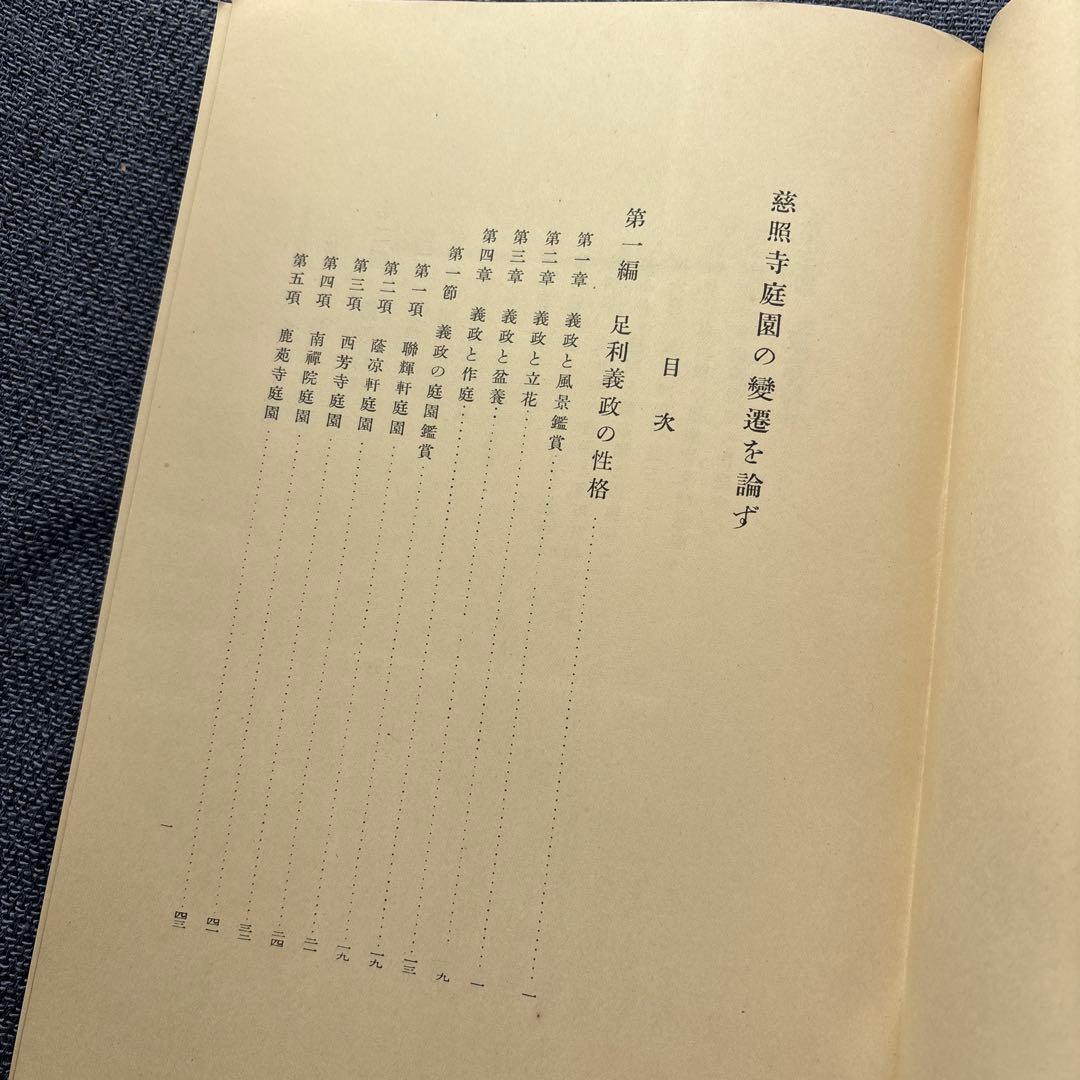 慈照寺庭園の變遷を論ず
目次
第一編 足利義政の性格……一
第一章 義政と風景鑑賞……一
第二章 義政と立花……九
第三章 義政と盆養……一三
第四章 義政と作庭……一九
第一節 義政の庭園鑑賞……一九
第一項 聯輝軒庭園……二一
第二項 蔭凉軒庭園……二四
第三項 西芳寺庭園……三三
第四項 南禪院庭園……四一
第五項 鹿苑寺庭園……四三
一